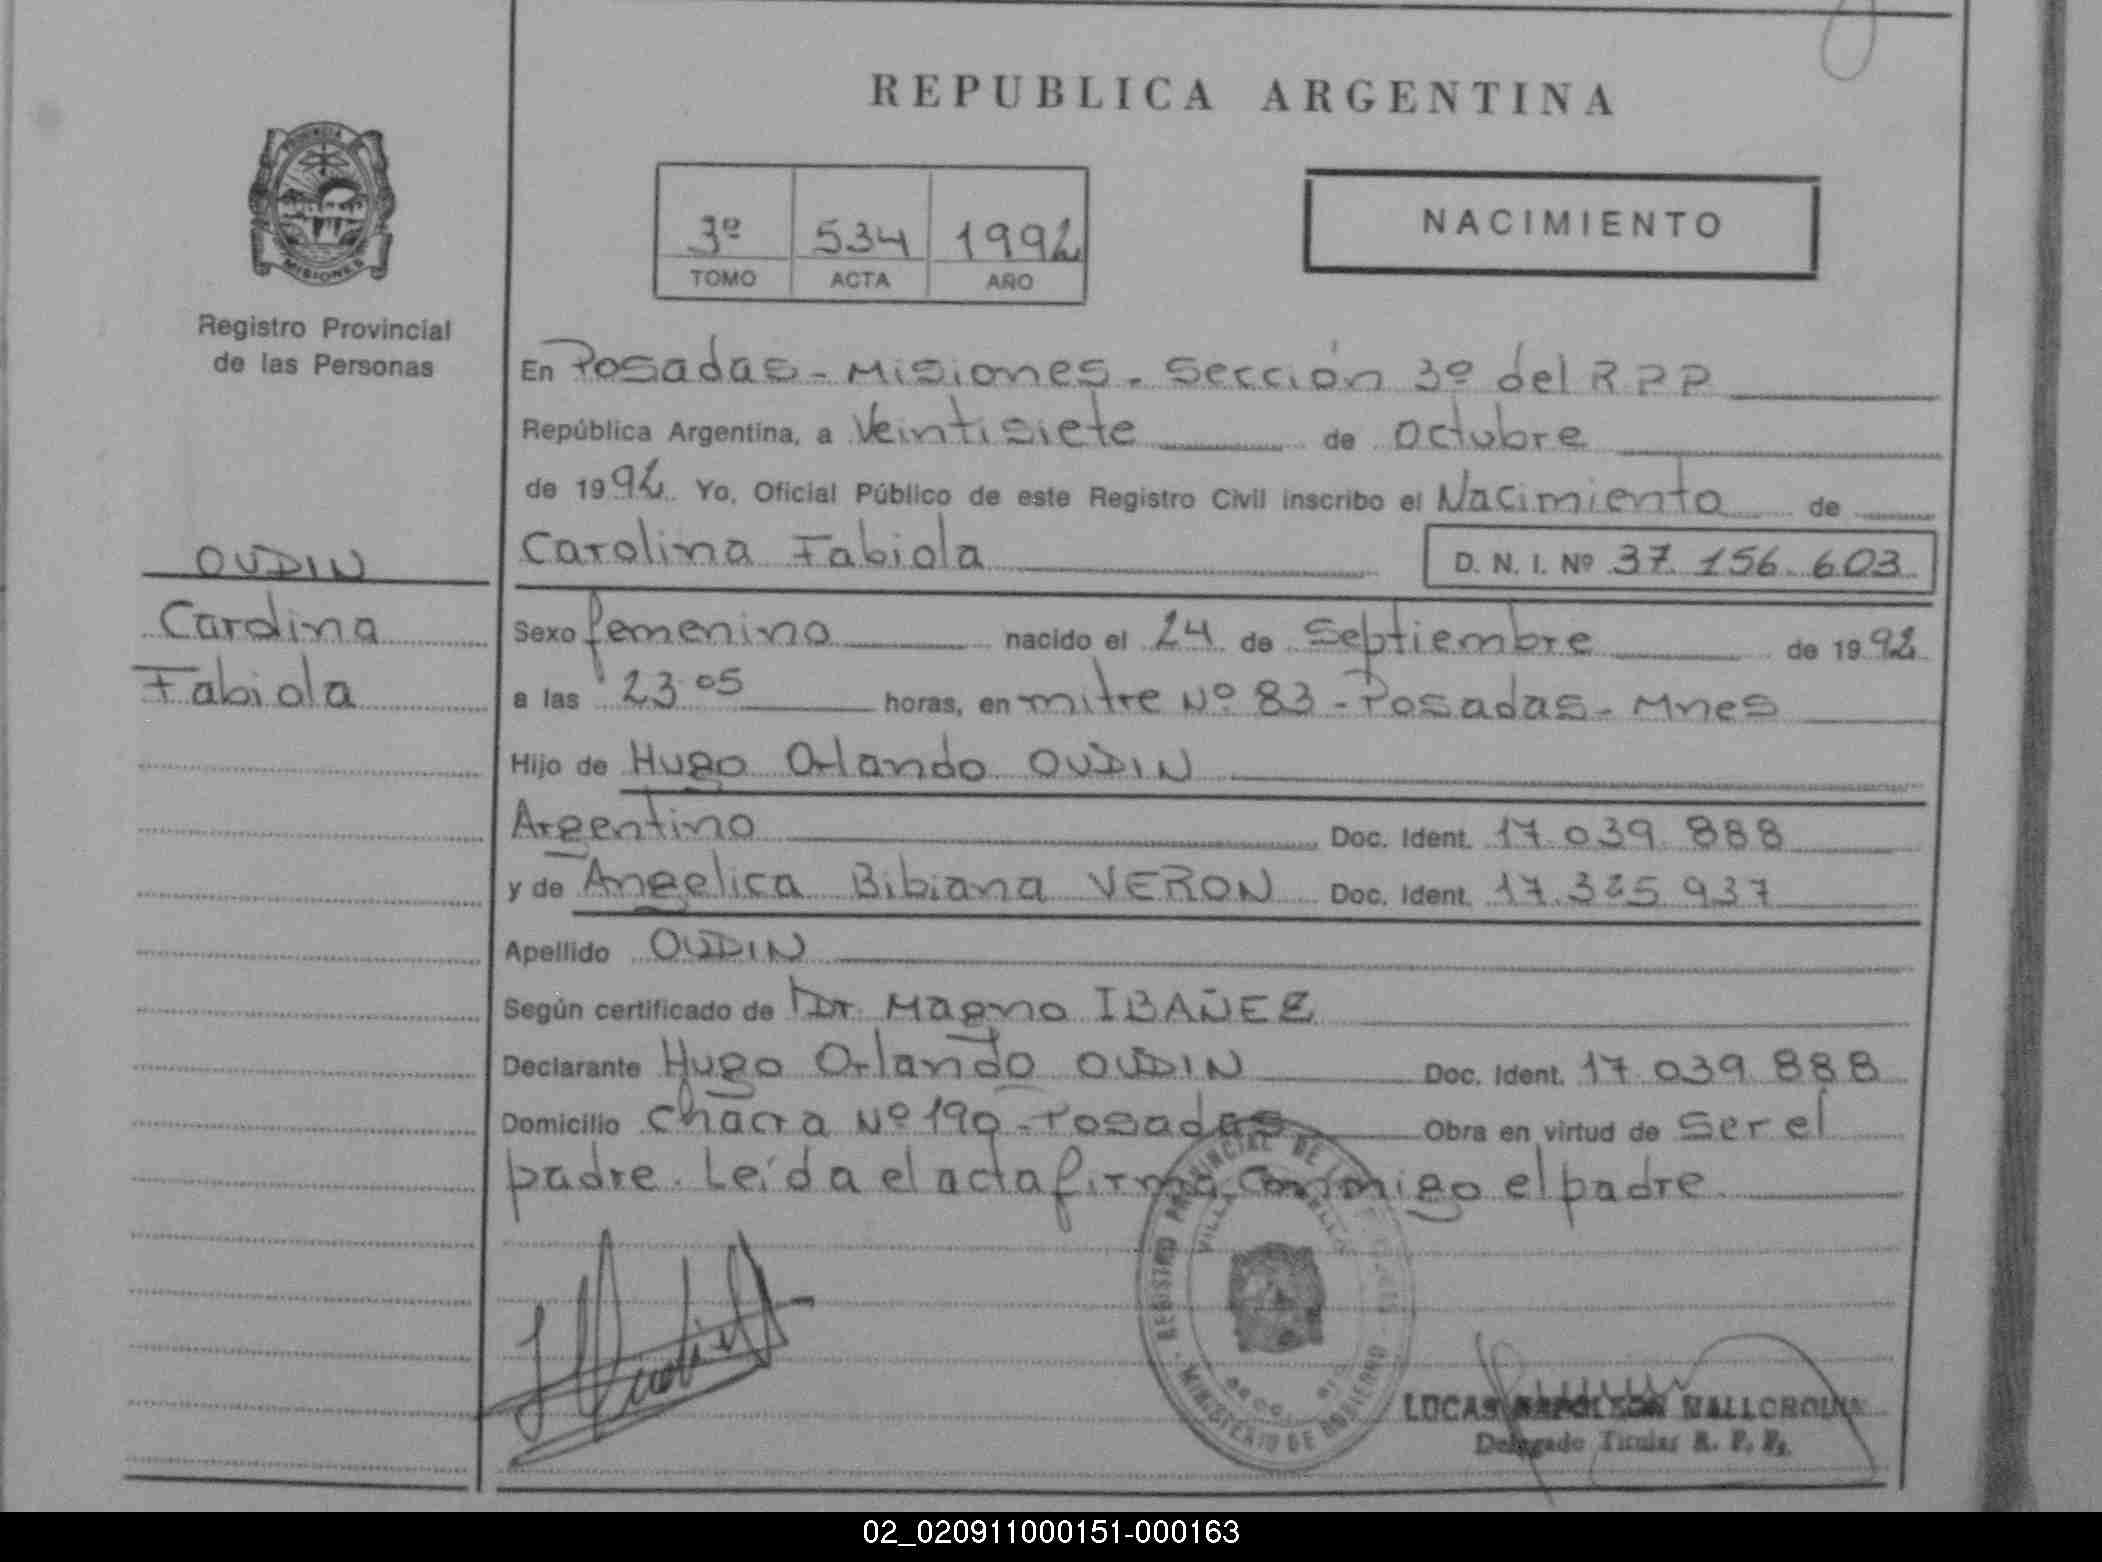 REPUBLICA ARGENTINA
PROVINCIA
MISIONES
Registro Provincial
de las Personas
3º 534 1992
TOMO ACTA AÑO
NACIMIENTO
En Posadas - Misiones. Sección 3º del R P P
República Argentina, a Veintisiete de Octubre
de 1992. Yo, Oficial Público de este Registro Civil inscribo el Nacimiento de
Carolina Fabiola D. N. I. Nº 37.156.603
OUDIN
Carolina
Fabiola
Sexo femenino nacido el 24 de Septiembre de 1992
a las 23 05 horas, en mitre Nº 83 - Posadas - Mnes
Hijo de Hugo Orlando OUDIN
Argentino Doc. Ident. 17.039.888
y de Angelica Bibiana VERON Doc. Ident. 17.325.937
Apellido OUDIN
Según certificado de Dr. Magno IBAÑEZ
Declarante Hugo Orlando OUDIN Doc. Ident. 17.039.888
Domicilio Chacra Nº 190 - Posadas Obra en virtud de Ser el
padre. Leída el acta firma conmigo el padre
REGISTRO PROVINCIAL DE
MINISTERIO DE GOBIERNO
LUCAS NAPOLEON
Delegado Titular R. P. P.
02_020911000151-000163